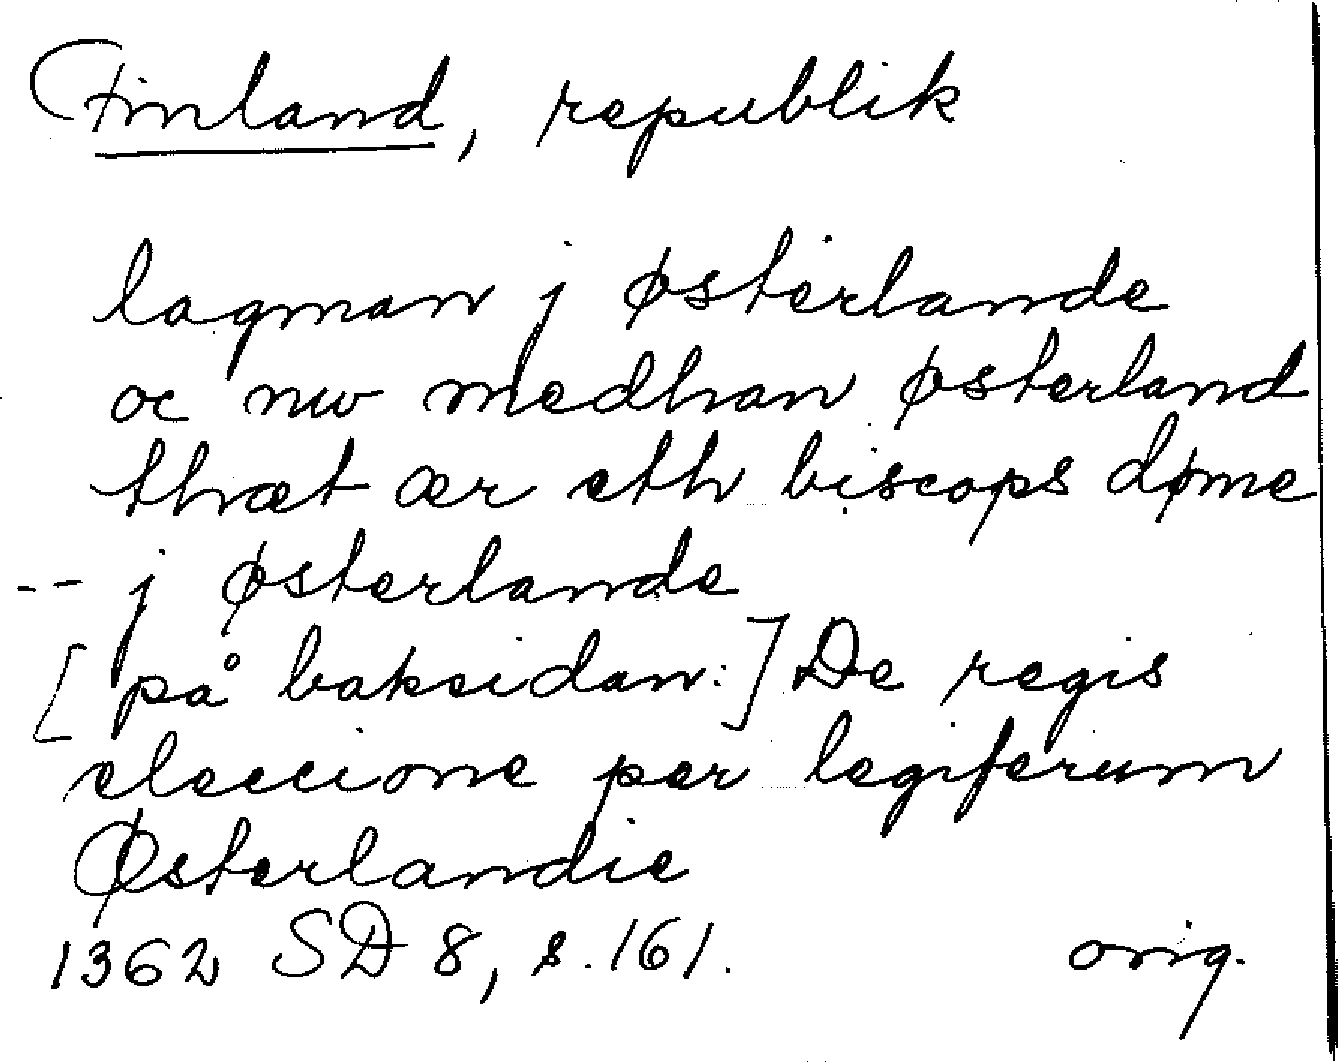 Finland, republik
lagman j østerlande
oc nw medhan østerland
thæt ær eth biscops døme
-- j østerlande
[på baksidan:] De regis
eleccione per legiferum
Østerlandie
1362 SD 8, s. 161. orig.